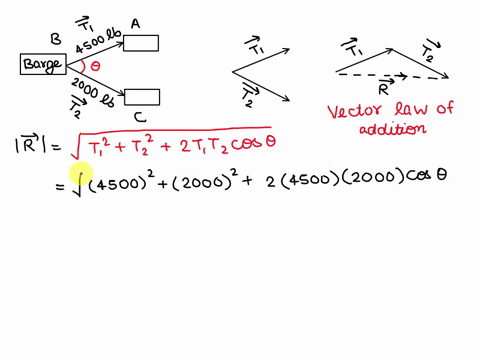 T₁→ A
B 4500 lb
Barge θ
2000 lb
T₂→ C
T₁→
T₂→
T₁→ T₂→
R→
Vector law of
addition
|R→| = √(T₁² + T₂² + 2T₁T₂ cos θ)
= √((4500)² + (2000)² + 2(4500)(2000) cos θ